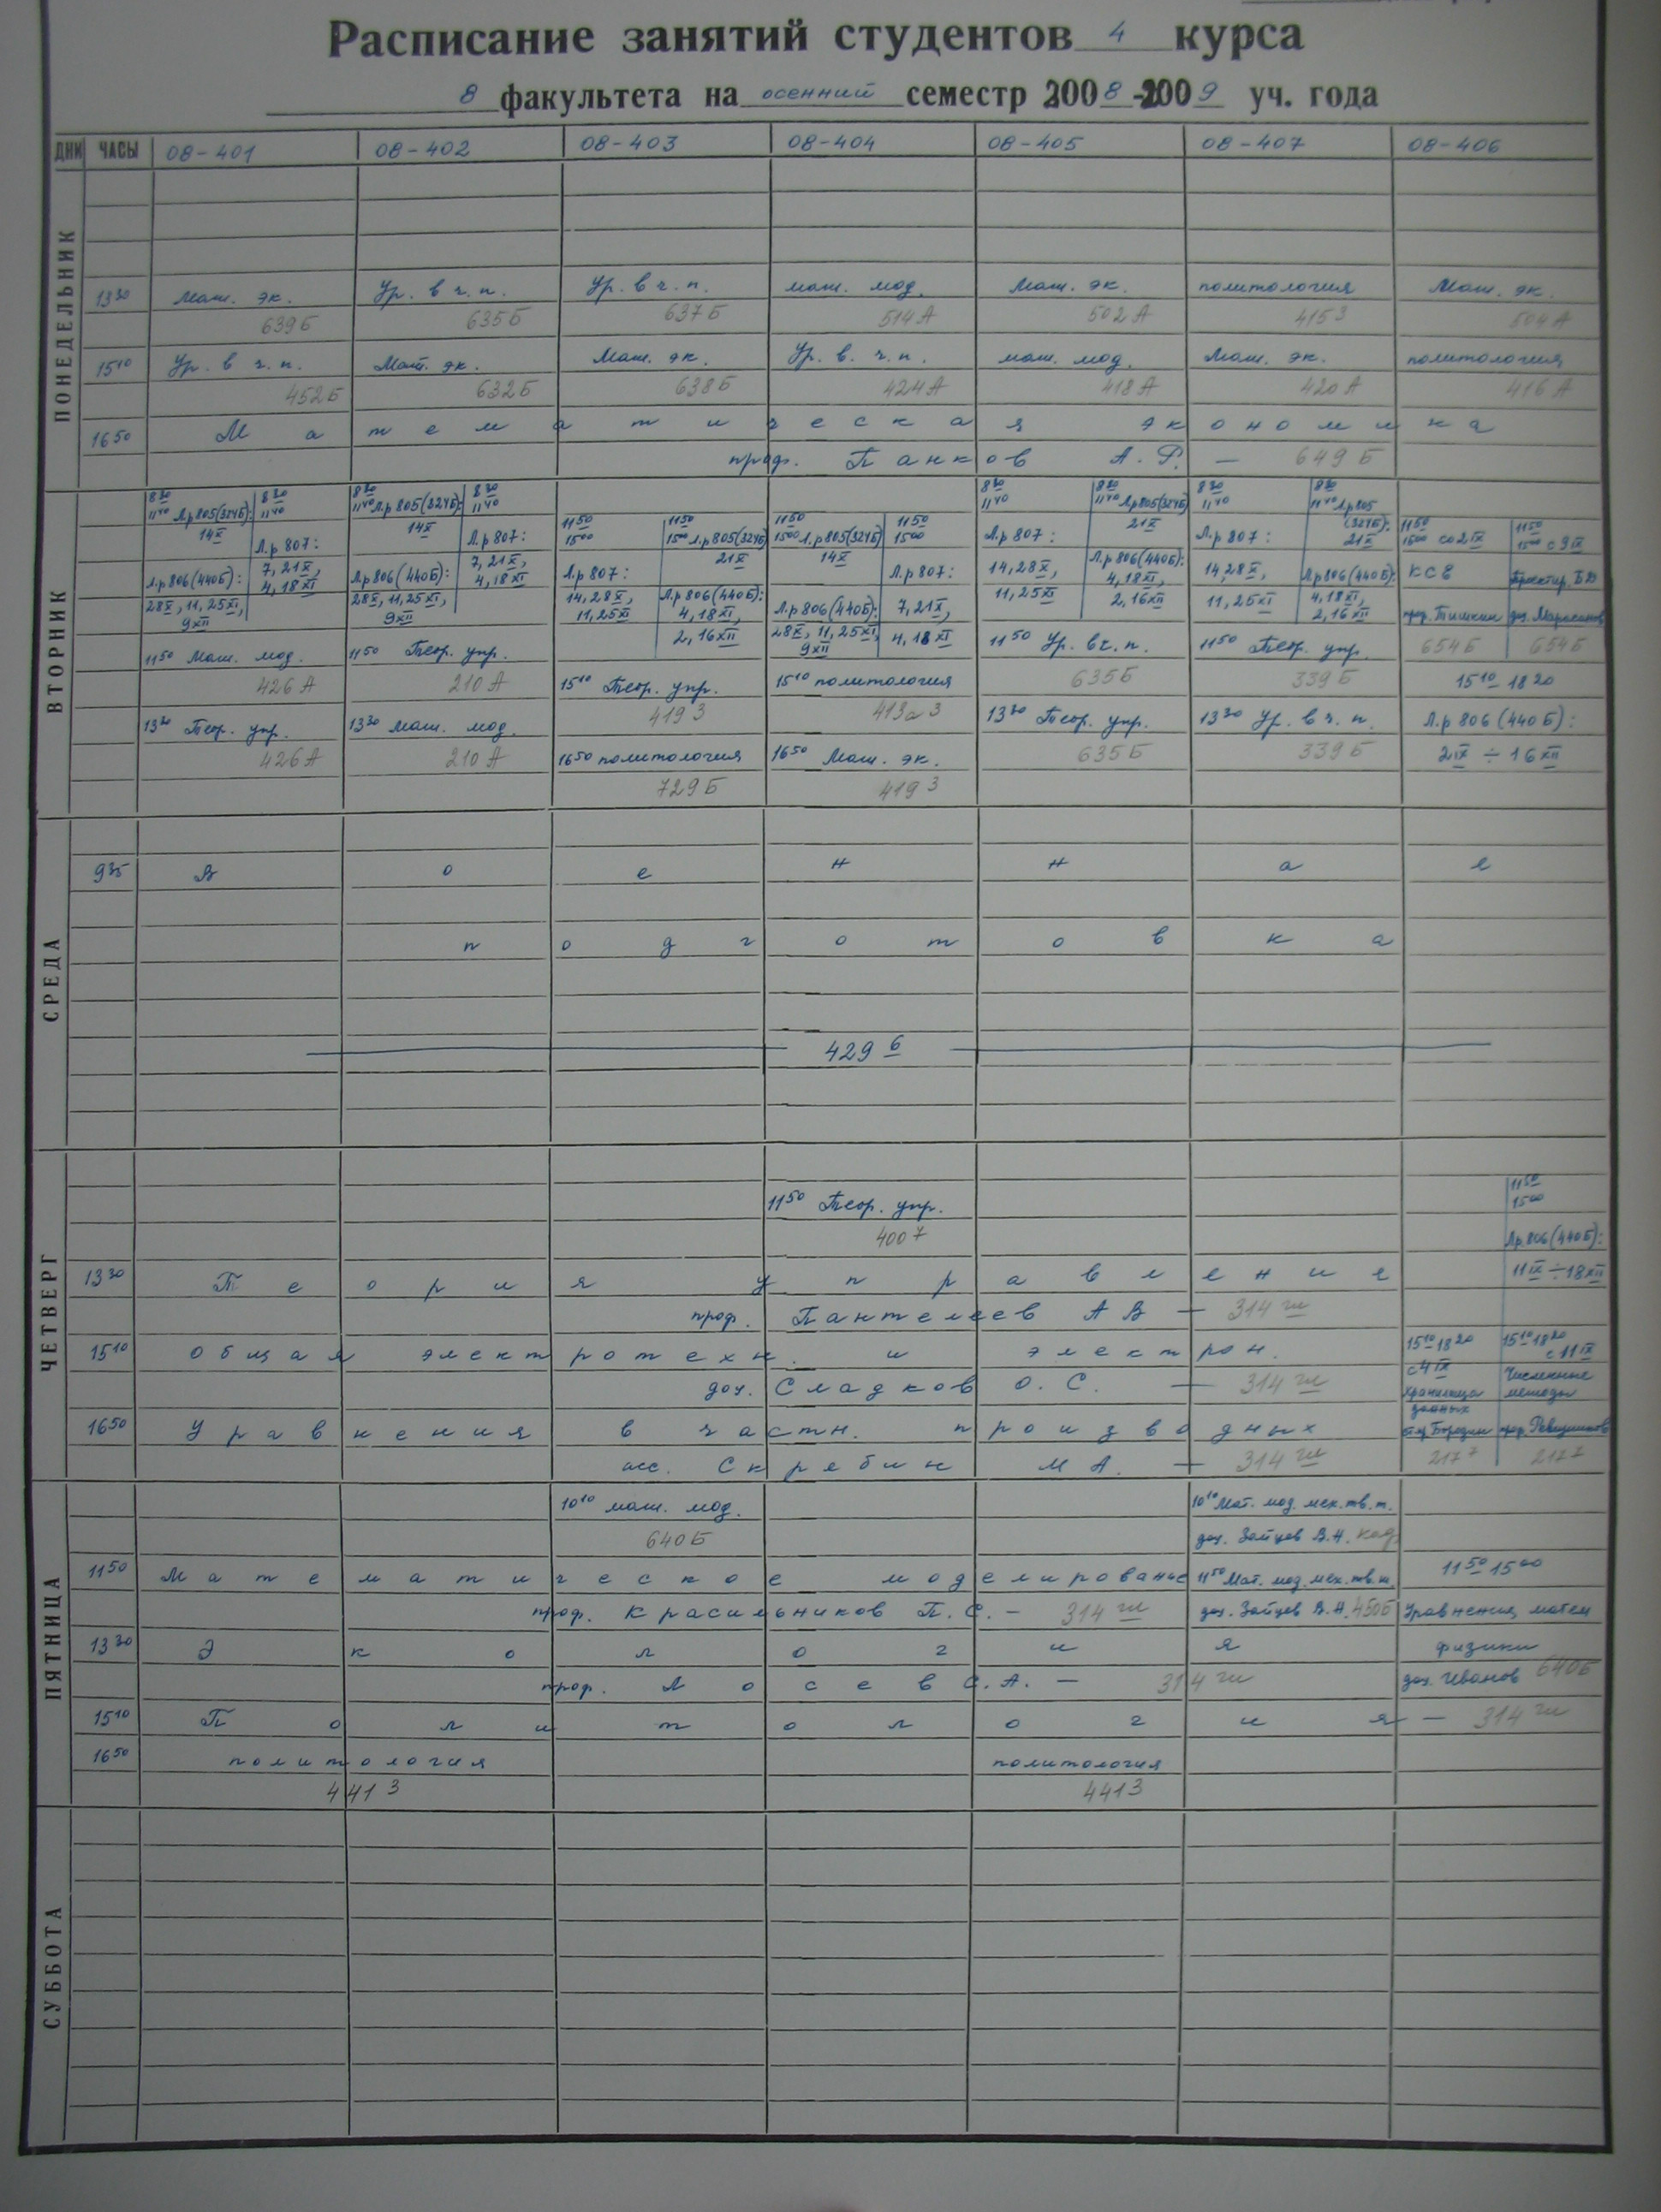 Расписание занятий студентов 4 курса
8 факультета на осенний семестр 2008-2009 уч. года
ДНИ ЧАСЫ 08-401 08-402 08-403 08-404 08-405 08-407 08-406
ПОНЕДЕЛЬНИК
13 30 Мат. эк. Ур. в ч. п. Ур. в ч. п. мат. мод. Мат. эк. политология Мат. эк.
639Б 635Б 637Б 514А 502А 415 3 504А
15 10 Ур. в ч. п. Мат. эк. Мат. эк. Ур. в. ч. п. мат. мод. Мат. эк. политология
452Б 632Б 638Б 424А 418А 420А 416А
16 50 Математическая экономика
проф. Панков А. Р. — 649Б
ВТОРНИК
8 30 8 30 8 30 8 30 8 30 8 30 8 30 8 30
11 40 Л.р 805(324Б): 11 40 11 40 Л.р 805(324Б): 11 40 11 40 11 40 Л.р 805(324Б) 11 40 11 40 Л.р 805
14 X 14 X 11 50 11 50 11 50 11 50 21 X (324Б): 11 50 11 50
Л.р 807: Л.р 807: 15 00 15 00 Л.р 805(324Б) 15 00 Л.р 805(324Б) 15 00 Л.р 807: Л.р 807: 21 X 15 00 со 2 IX 15 00 с 9 IX
7, 21 X, 7, 21 X, 21 X 14 X 14, 28 X, Л.р 806(440Б): 14, 28 X,
Л.р 806(440Б): 4, 18 XI Л.р 806(440Б): 4, 18 XI Л.р 807: Л.р 807: 4, 18 XI, Л.р 806(440Б): КСЕ Проектир. БД
28 X, 11, 25 XI, 28 X, 11, 25 XI, 14, 28 X, Л.р 806(440Б): Л.р 806(440Б): 7, 21 X 11, 25 XI 2, 16 XII 11, 25 XI 4, 18 XI,
9 XII 9 XII 11, 25 XI 4, 18 XI, 28 X, 11, 25 XI, 4, 18 XI 2, 16 XII проф. Тишкин доц.
2, 16 XII 9 XII
11 50 Мат. мод. 11 50 Теор. упр. 11 50 Ур. в ч. п. 11 50 Теор. упр. 654Б 654Б
426А 210А 15 10 Теор. упр. 15 10 политология 635Б 339Б 15 10 - 18 20
419 3 413а 3
13 30 Теор. упр. 13 30 Мат. мод. 13 30 Теор. упр. 13 30 Ур. в ч. п. Л.р 806 (440Б):
426А 210А 16 50 политология 16 50 Мат. эк. 635Б 339Б 2 IX ÷ 16 XII
729Б 419 3
СРЕДА
9 35 Военная
подготовка
429 6
ЧЕТВЕРГ
11 50
11 50 Теор. упр. 15 00
400 7 Л.р 806(440Б):
13 30 Теория управление 11 IX ÷ 18 XII
проф. Пантелеев А В — 314 гл
15 10 Общая электротехн. и электрон. 15 10 18 20 15 10 18 20
с 4 IX с 11 IX
доц. Сладков О. С. — 314 гл Хранилища данных Численные методы
16 50 Уравнения в частн. производных ст. пр Бородин проф. Ревизников
асс. Скрябин М А. — 314 гл 217 7 217 7
ПЯТНИЦА
10 10 мат. мод. 10 10 Мат. мод. мех. тв. т.
640Б доц. Зайцев В.Н. каф.
11 50 Математическое моделирование 11 50 Мат. мод. мех. тв. т. 11 50 15 00
проф. Красильников П. С. — 314 гл доц. Зайцев В.Н. 450Б Уравнения матем
13 30 Экология физики
проф. Лосев С.А. — 314 гл доц. Иванов 640Б
15 10 Политология — 314 гл
16 50 политология политология
441 3 441 3
СУББОТА